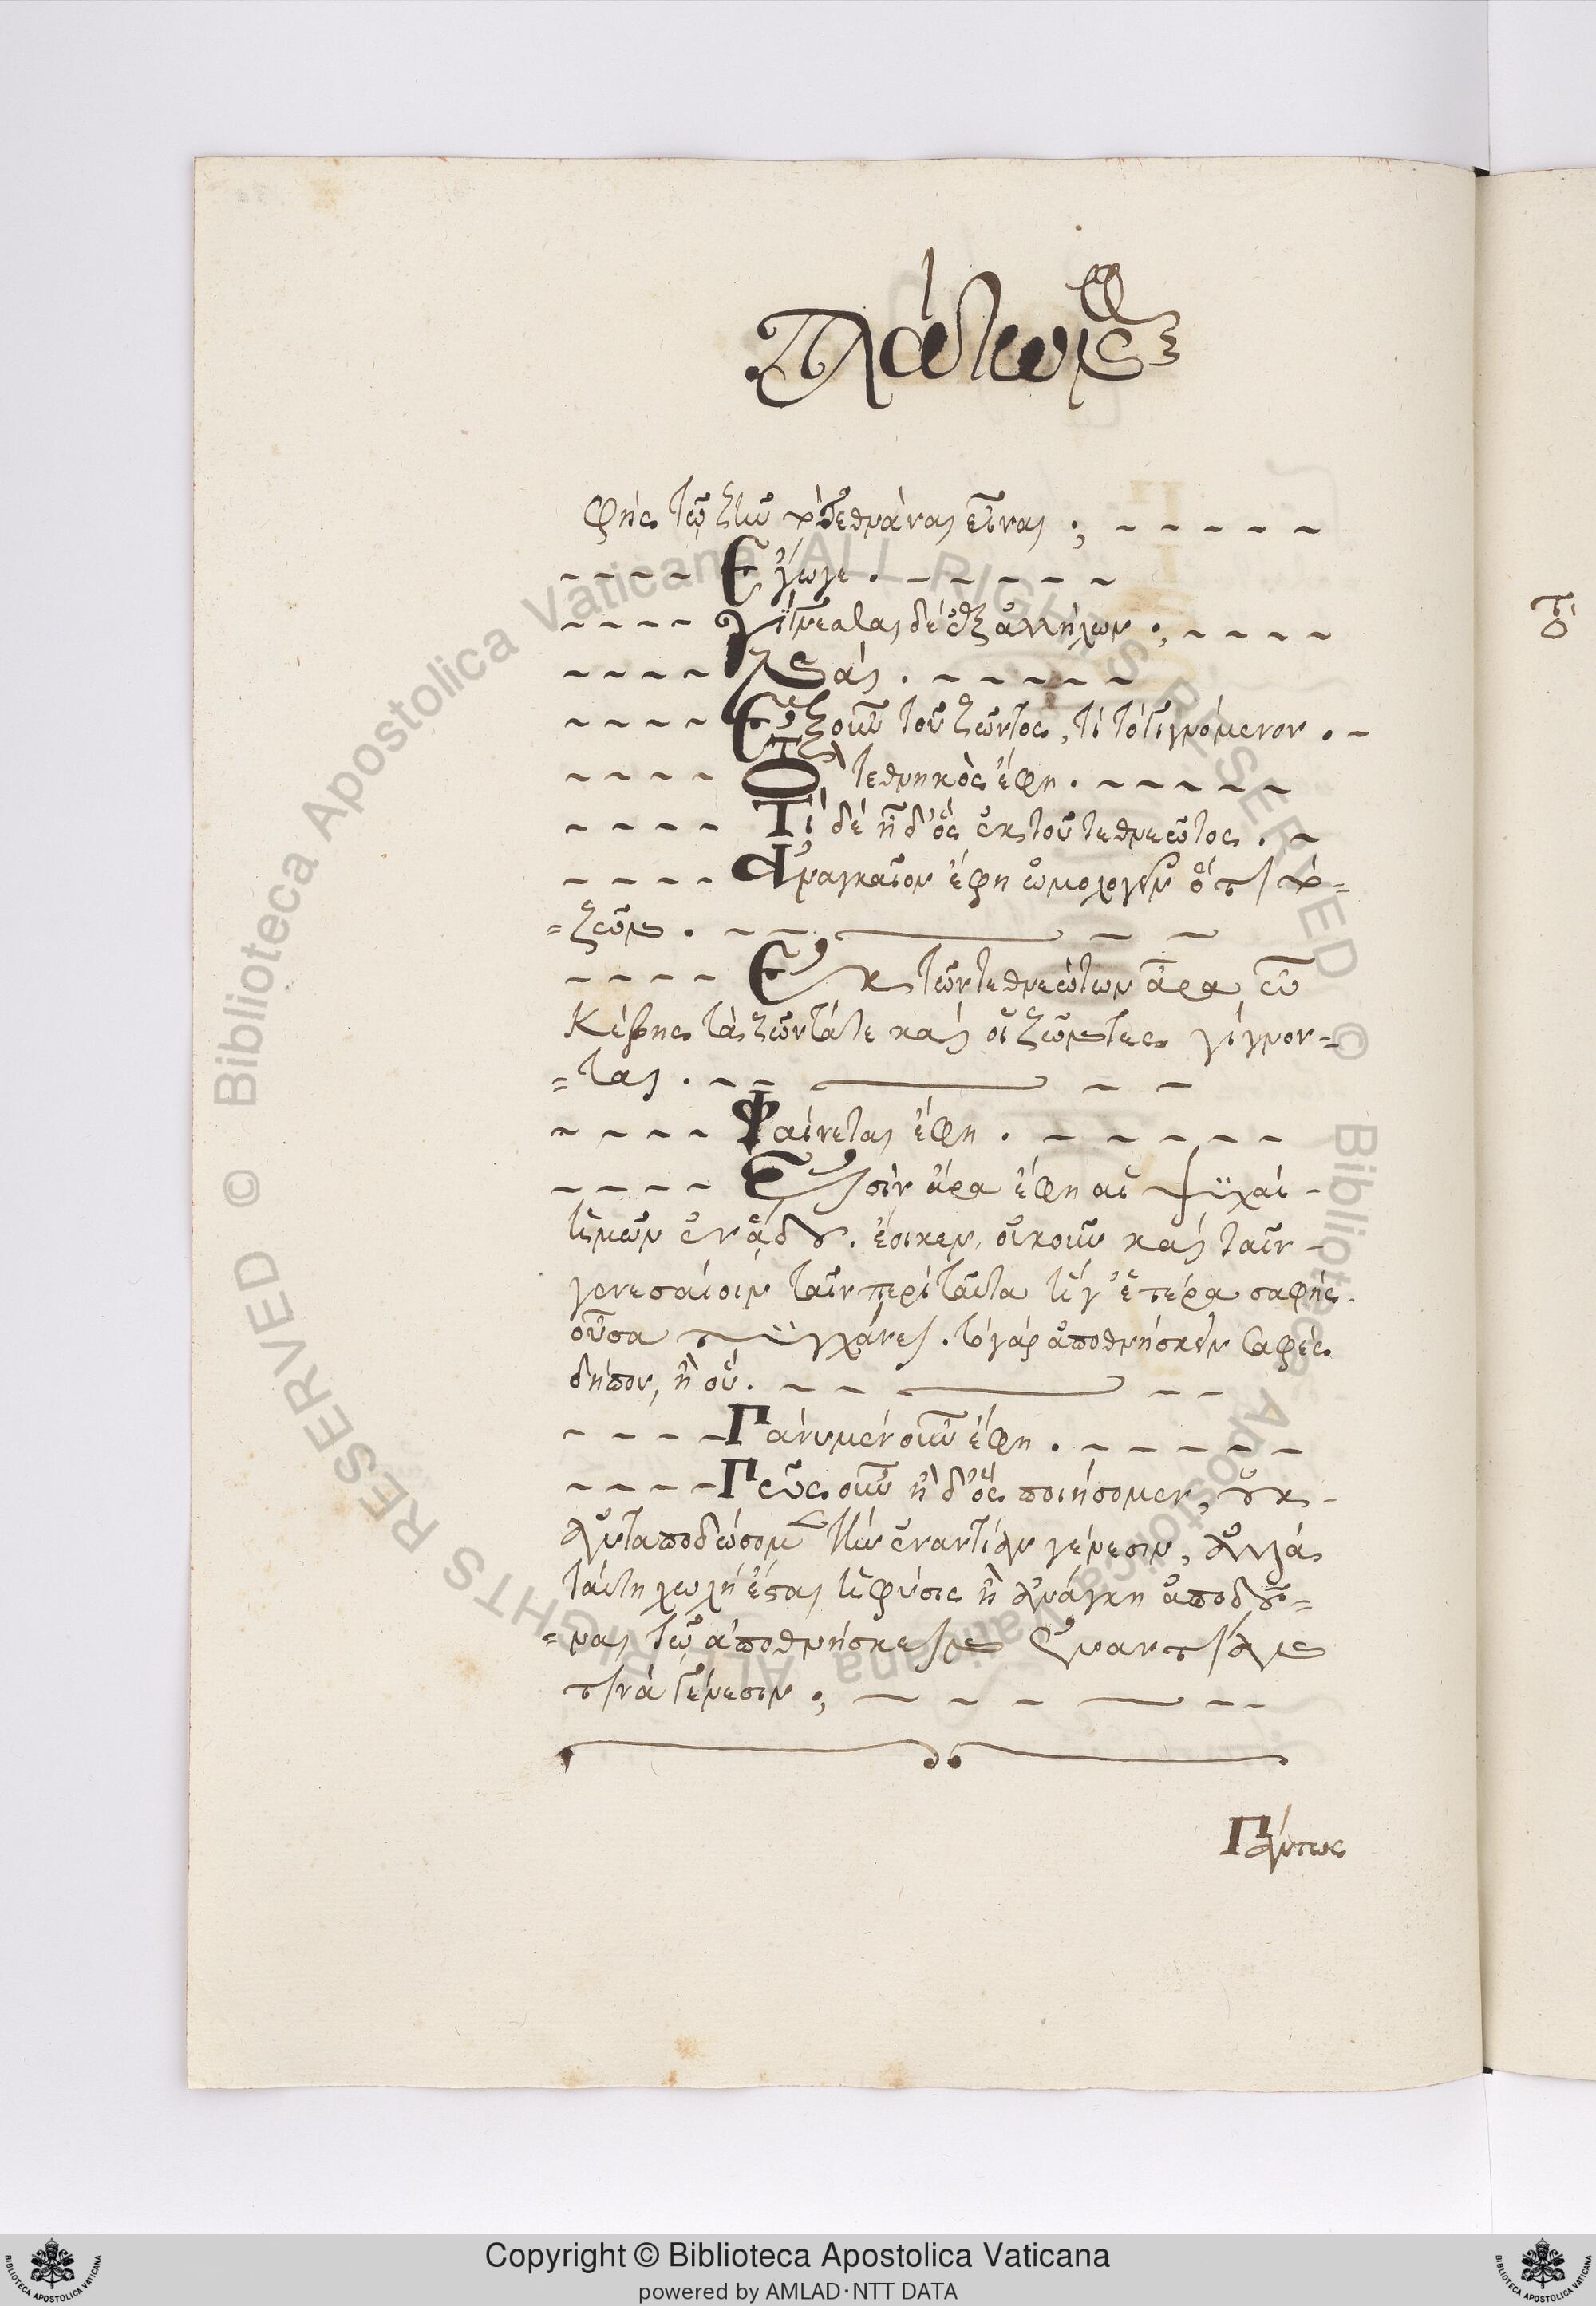 Πλάτωνος
φὴς τῷ ζῆν τὸ τεθνάναι εἶναι ;
Ἔγωγε .
γίγνεσθαι δὲ ἐξ ἀλλήλων ;
Ναί .
Ἐξ οὖν τοῦ ζῶντος, τί τὸ γιγνόμενον .
Τὸ τεθνηκὸς ἔφη .
Τί δὲ ἦ δ' ὃς ἐκ τοῦ τεθνεῶτος .
Ἀναγκαῖον ἔφη ὁμολογεῖν ὅτι τὸ=
=ζῶν .
Ἐκ τῶν τεθνεώτων ἄρα ὦ
Κέβης τὰ ζῶντά τε καὶ οἱ ζῶντες γίγνον=
=ται .
Φαίνεται ἔφη .
Εἰσὶν ἄρα ἔφη αἱ ψυχαὶ
ἡμῶν ἐν ἅδου . ἔοικεν, οὐκοῦν καὶ ταῖν
γενεσαίοιν ταῖν περὶ ταῦτα ἥγ' ἑτέρα σαφὴς
οὖσα τυγχάνει . τὸ γὰρ ἀποθνήσκειν σαφὲς
δήπου, ἢ οὔ .
Πάνυ μὲν οὖν ἔφη .
Πῶς οὖν ἦ δ' ὃς ποιήσομεν, οὐκ
ἀνταποδώσομεν τὴν ἐναντίαν γένεσιν, ἀλλὰ
ταύτη χωλὴ ἔσται ἡ φύσις ἢ ἀνάγκη ἀποδοῦ=
=ναι τῷ ἀποθνήσκειν ἐναντίαν
τινὰ γένεσιν ;
Πάντως